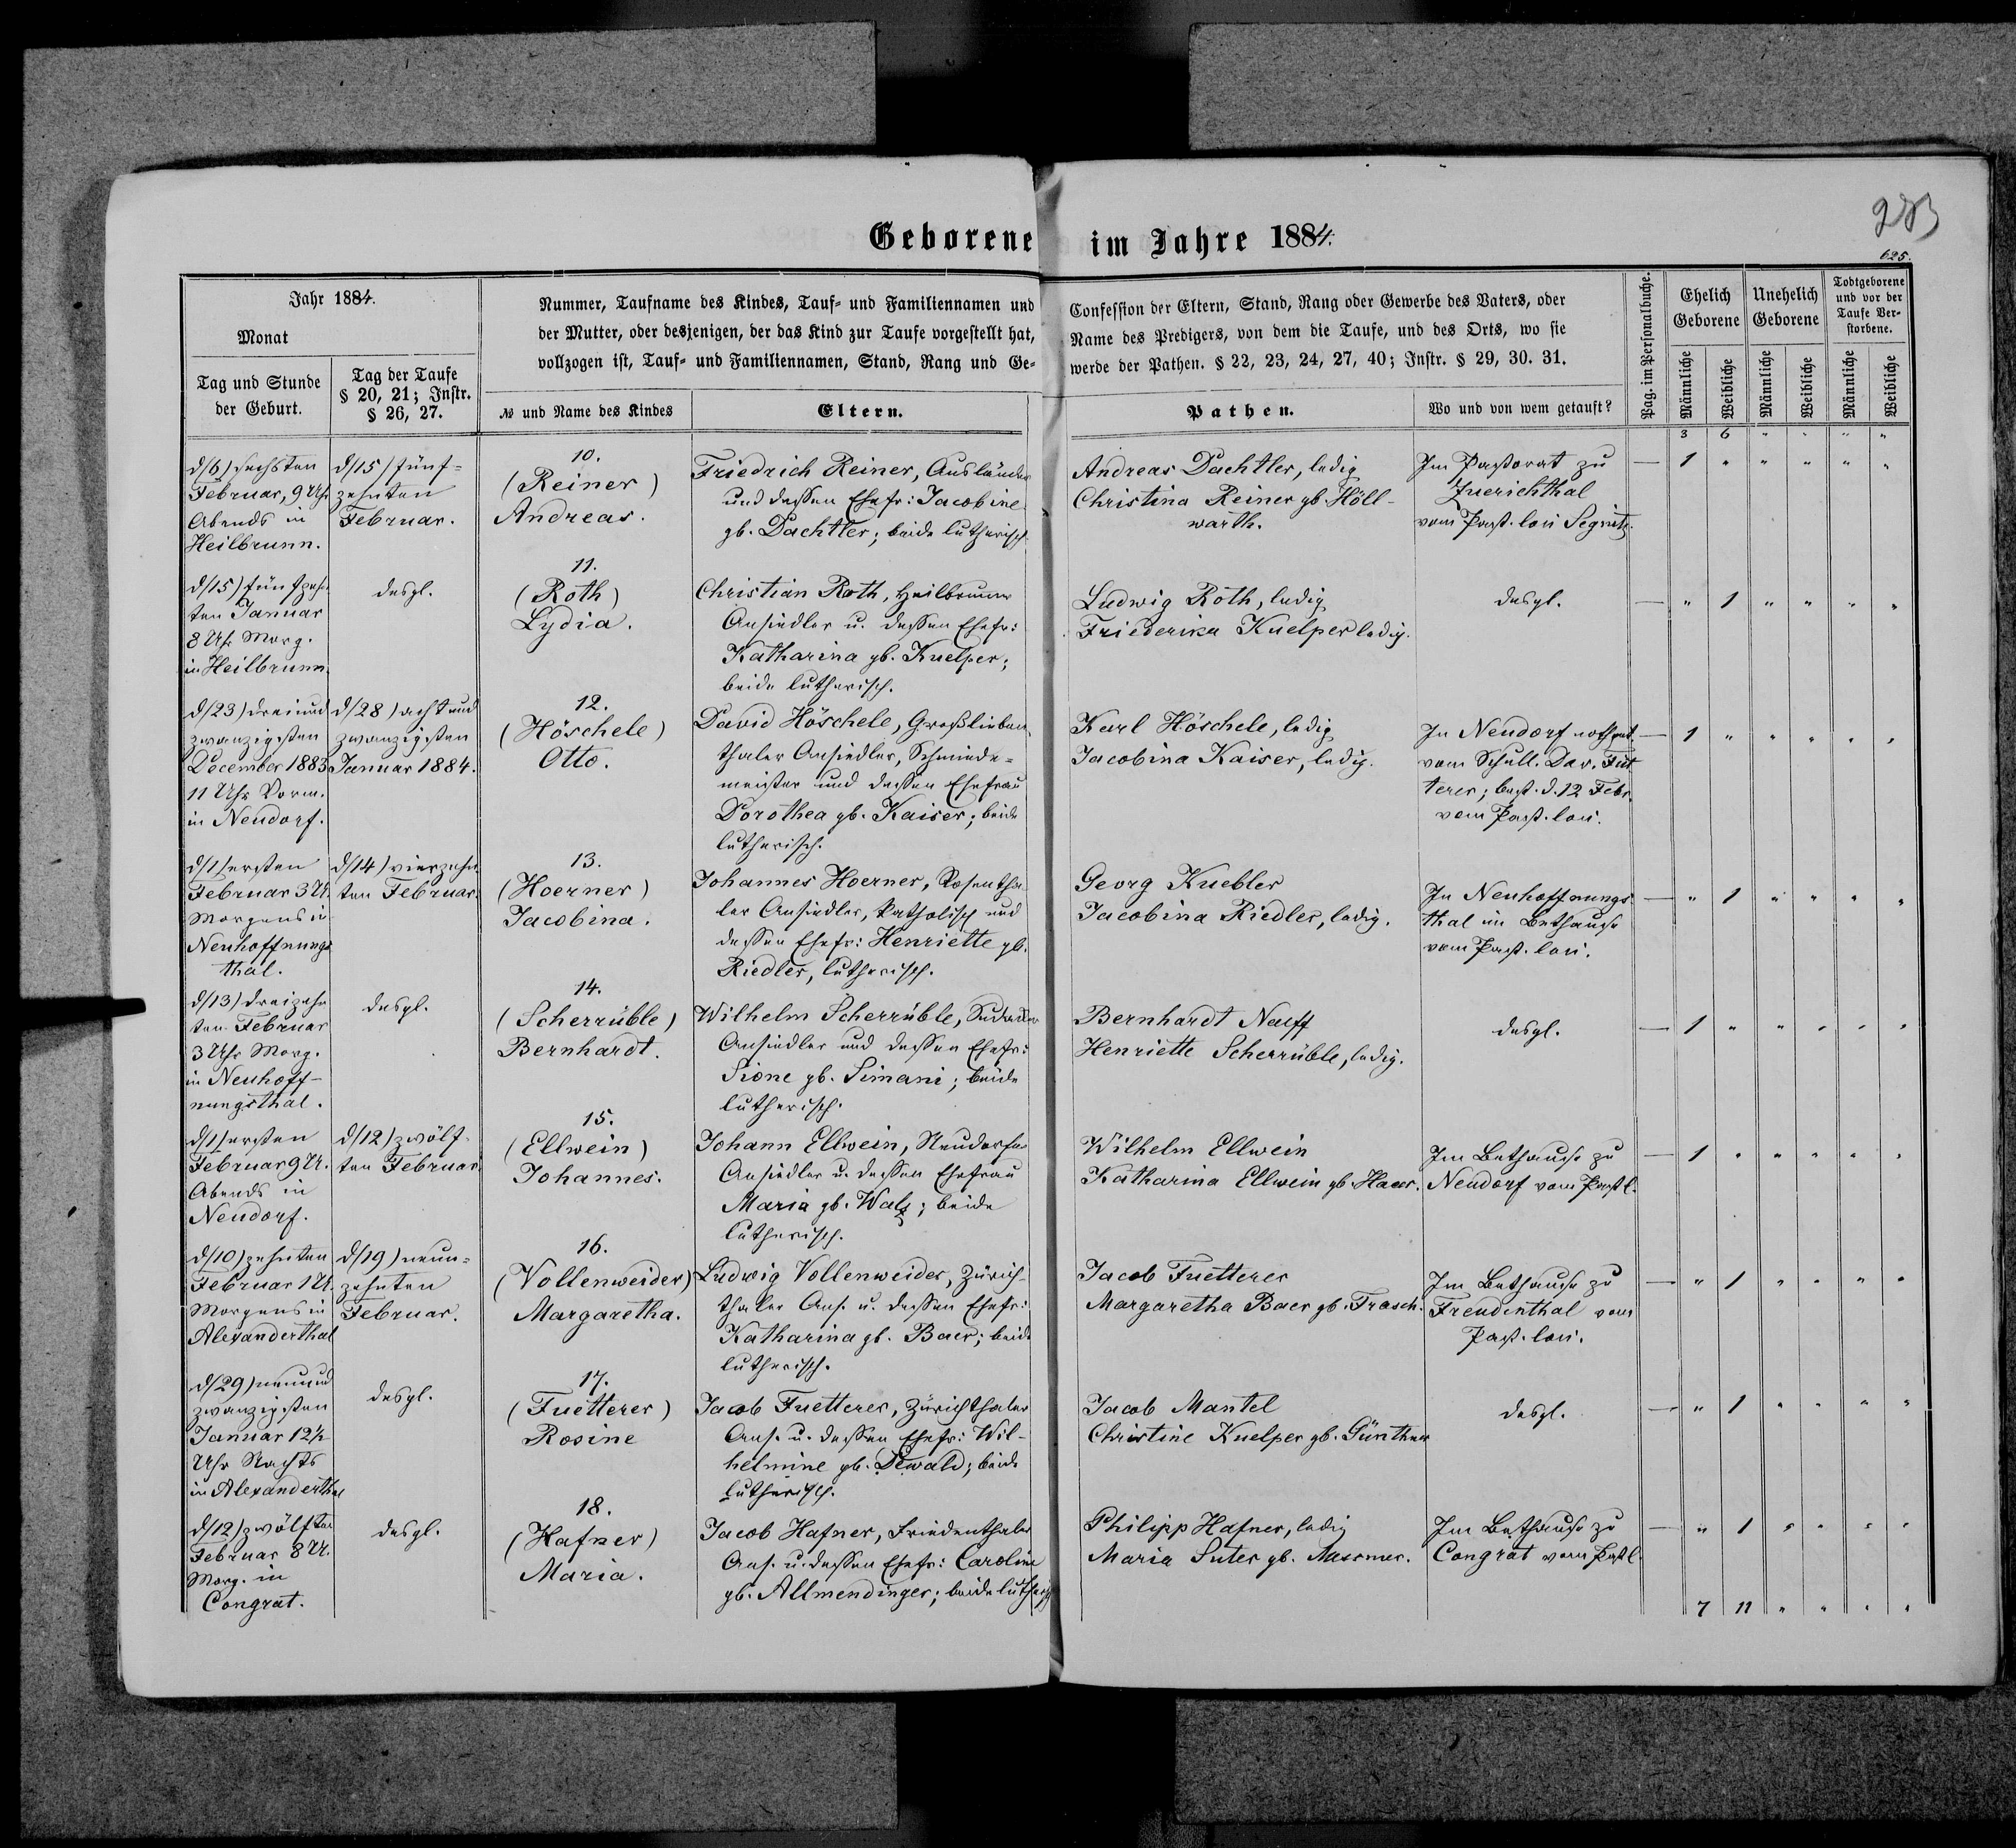 283
625.
Geborene im Jahre 1884.
Jahr 1884.
Monat
Tag und Stunde
der Geburt.
Tag der Taufe
§ 20, 21; Instr.
§ 26, 27.
Nummer, Taufname des Kindes, Tauf- und Familiennamen und
der Mutter, oder desjenigen, der das Kind zur Taufe vorgestellt hat,
vollzogen ist, Tauf- und Familiennamen, Stand, Rang und Ge-
№ und Name des Kindes
Eltern.
Confession der Eltern, Stand, Rang oder Gewerbe des Vaters, oder
Name des Predigers, von dem die Taufe, und des Orts, wo sie
werde der Pathen. § 22, 23, 24, 27, 40; Instr. § 29, 30. 31.
Pathen.
Wo und von wem getauft?
Pag. im Personalbuche.
Ehelich
Geborene
Unehelich
Geborene
Todtgeborene
und vor der
Taufe Ver-
storbene.
Männliche
Weibliche
Männliche
Weibliche
Männliche
Weibliche
3 6 " " " "
d/6) sechsten
Februar, 9 Uhr
Abends in
Heilbrunn.
d/15) fünf-
zehnten
Februar.
10.
(Reiner)
Andreas.
Friedrich Reiner, Ausländer
und dessen Ehefr: Jacobine
gb. Dachtler; beide lutherisch.
Andreas Dachtler, ledig
Christina Reiner gb. Höll-
warth.
Im Pastorat zu
Zuerichthal
vom Past. loci Segnitz.
— 1 " " " " "
d/15) fünfzehn-
ten Januar
8 Uhr Morg.
in Heilbrunn.
desgl.
11.
(Roth)
Lydia.
Christian Roth, Heilbrunner
Ansiedler u. dessen Ehefr:
Katharina gb. Kuelper;
beide lutherisch.
Ludwig Roth, ledig
Friederika Kuelper ledig.
desgl.
— " 1 " " " "
d/23) dreiund
zwanzigsten
December 1883
11 Uhr Vorm.
in Neudorf.
d/28) acht und
zwanzigsten
Januar 1884.
12.
(Höschele)
Otto.
David Höschele, Großlieben-
thaler Ansiedler, Schmiede-
meister und dessen Ehefrau
Dorothea gb. Kaiser; beide
lutherisch.
Karl Höschele, ledig
Jacobina Kaiser, ledig.
In Neudorf nothget.
vom Schull. Dav. Füt
terer; best. d. 12 Febr.
vom Past. loci.
— 1 " " " " "
d/1) ersten
Februar 3 U.
Morgens in
Neuhoffnungs
thal.
d/14) vierzehn
ten Februar.
13.
(Hoerner)
Jacobina.
Johannes Hoerner, Rosentha
ler Ansiedler, katholisch und
dessen Ehefr: Henriette gb.
Riedler, lutherisch.
Georg Kuebler
Jacobina Riedler, ledig.
In Neuhoffnungs
thal im Bethause
vom Past. loci.
— " 1 " " " "
d/13) dreizehn
ten Februar
3 Uhr Morg.
in Neuhoff-
nungsthal.
desgl.
14.
(Scherrüble)
Bernhardt.
Wilhelm Scherrüble,
Ansiedler und dessen Ehefr:
Sione gb. Simani; beide
lutherisch.
Bernhardt Naeff
Henriette Scherrüble, ledig.
desgl.
— 1 " " " " "
d/1) ersten
Februar 9 U.
Abends in
Neudorf.
d/12) zwölf-
ten Februar
15.
(Ellwein)
Johannes.
Johann Ellwein, Neudorfer
Ansiedler u. dessen Ehefrau
Maria gb. Walz; beide
lutherisch.
Wilhelm Ellwein
Katharina Ellwein gb. Haar.
Im Bethause zu
Neudorf vom Past l.
— 1 " " " " "
d/10) zehnten
Februar 1 U.
Morgens in
Alexanderthal
d/19) neun-
zehnten
Februar.
16.
(Vollenweider)
Margaretha.
Ludwig Vollenweider, Zürich-
thaler Ans. u. dessen Ehefr:
Katharina gb. Baer; beide
lutherisch.
Jacob Fuetterer
Margaretha Baer gb. Frasch.
Im Bethause zu
Freudenthal vom
Past. loci.
— " 1 " " " "
d/29) neunund
zwanzigsten
Januar 12½
Uhr Nachts
in Alexanderthal
desgl.
17.
(Fuetterer)
Rosine
Jacob Fuetterer, Zürichthaler
Ans. u. dessen Ehefr: Wil-
helmine gb. Dewald; beide
lutherisch.
Jacob Mantel
Christine Kuelper gb. Günthner
desgl.
— " 1 " " " "
d/12) zwölften
Februar 8 U.
Morg. in
Congrat.
desgl.
18.
(Hafner)
Maria.
Jacob Hafner, Friedenthaler
Ans. u. dessen Ehefr: Caroline
gb. Allmendinger; beide lutherisch
Philipp Hafner, ledig
Maria Suter gb. Messmer.
Im Bethause zu
Congrat vom Past l.
— " 1 " " " "
7 11 " " " "